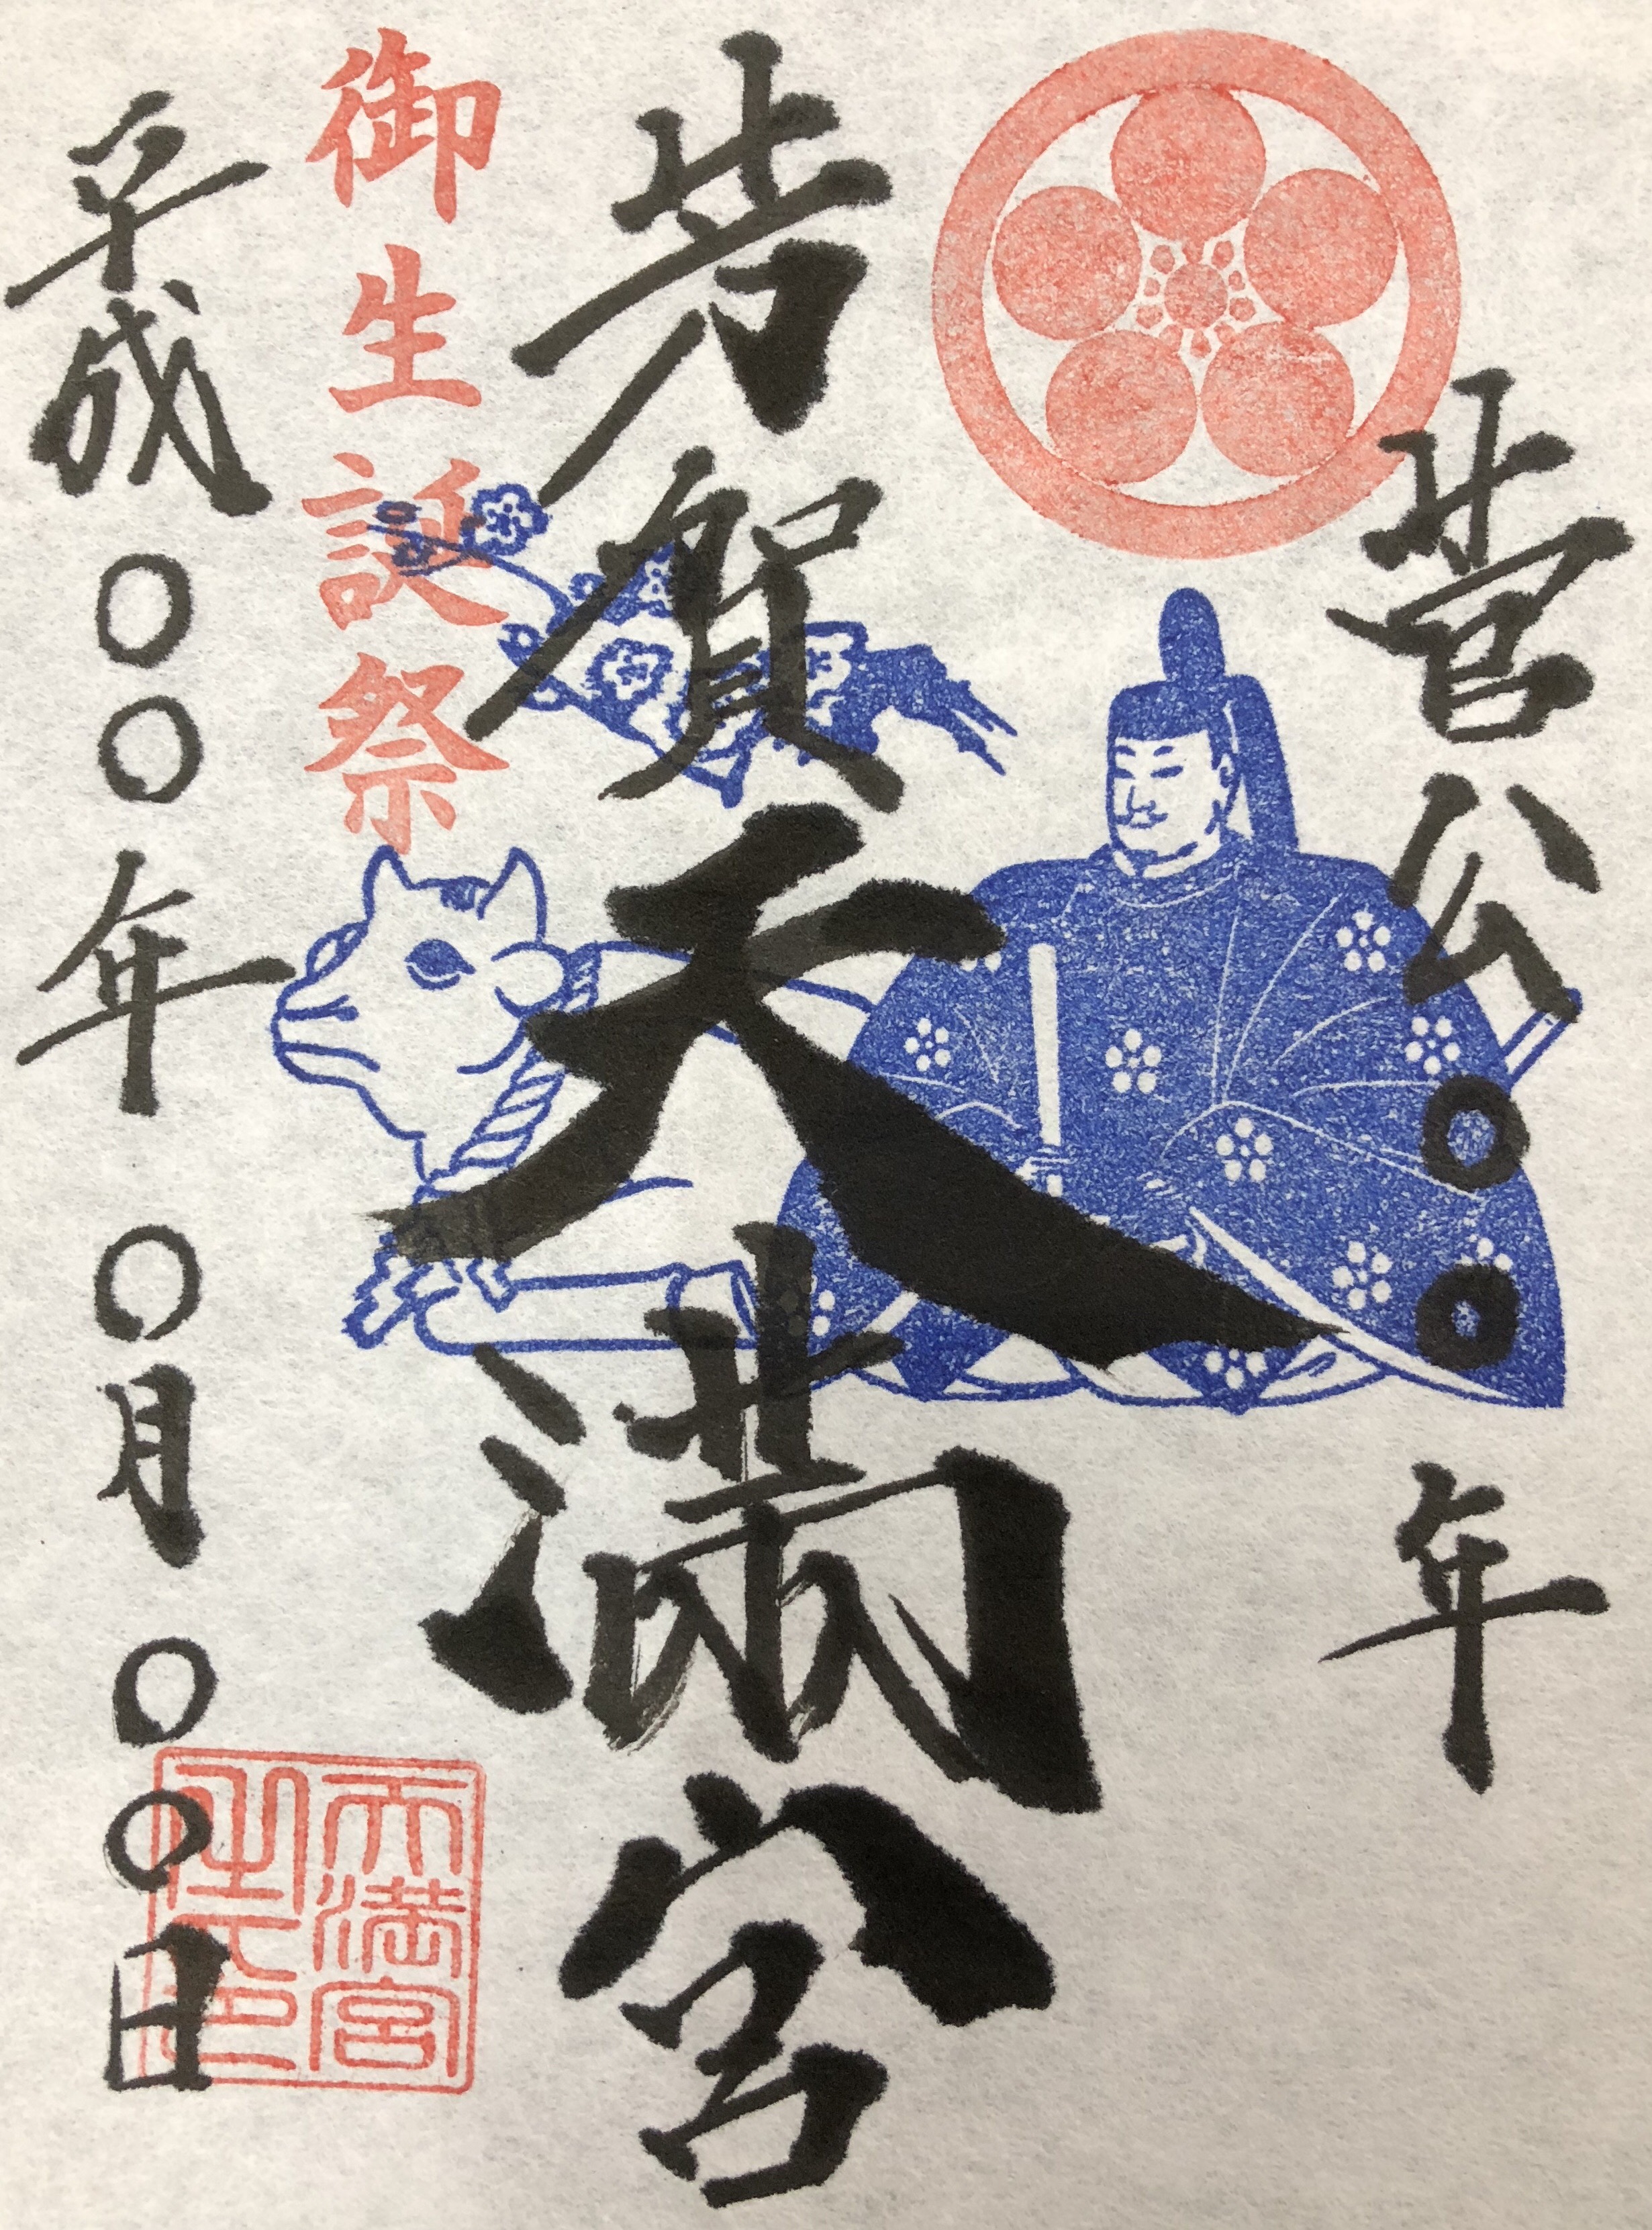 菅公〇〇年
芳賀天満宮
御生誕祭
平成〇〇年〇月〇〇日
天満宮